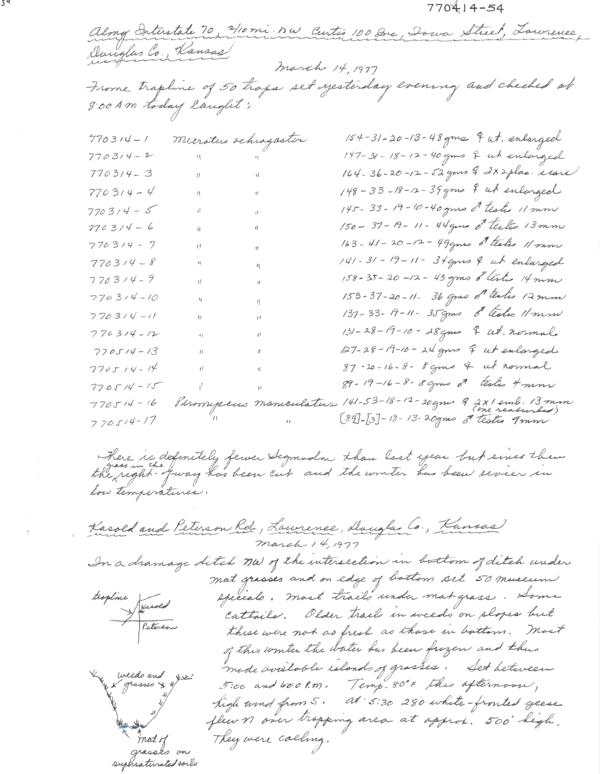 770414-54
Along Interstate 70, 2/10 mi. NW Curtis 100 Bre, Iowa Street, Lawrence,
Douglas Co., Kansas
March 14, 1977
Frome trapline of 50 traps set yesterday evening and checked at
8:00 AM today caught:
770314-1 Microtus ochrogaster 154-31-20-13-48gms ♀ ut. enlarged
770314-2 " " 147-31-18-12-40gms ♀ ut enlarged
770314-3 " " 164-36-20-12-52gms ♀ 2x2 plac. scars
770314-4 " " 149-33-18-12-39gms ♀ ut enlarged
770314-5 " " 145-33-19-10-40gms ♂ testes 11 mm
770314-6 " " 150-37-19-11-44gms ♂ testes 13mm
770314-7 " " 163-41-20-12-49gms ♂ testes 11 mm
770314-8 " " 141-31-19-11-34gms ♀ ut enlarged
770314-9 " " 158-35-20-12-43gms ♂ testes 14 mm
770314-10 " " 153-37-20-11-36 gms ♂ testes 12 mm
770314-11 " " 137-33-19-11-35gms ♂ testes 11 mm
770314-12 " " 131-28-19-10-28gms ♀ ut. normal
770514-13 " " 127-29-19-10-24 gms ♀ ut enlarged
770514-14 " " 87-20-16-8-8gms ♀ ut normal
770514-15 " " 89-19-16-8-8gms ♂ testes 4mm
770514-16 Peromyscus maniculatus 141-53-18-12-20gms ♀ 2x1 emb. 13 mm
(one reabsorbed)
770514-17 " " [39]-[3]-18-13-20gms ♂ testes 9mm
There is definitely fewer Sigmodon than last year but since then
grass in the
the right-of way has been cut and the winter has been sevier in
low temperatures.
Kasold and Peterson Rd, Lawrence, Douglas Co., Kansas
March 14, 1977
In a dramage ditch NW of the intersection in bottom of ditch under
mat grasses and on edge of bottom set 50 museum
specials. Most trails under mat grass. Some
cattails. Older trails in weeds on slopes but
these were not as fresh as those in bottom. Most
of this winter the water has been frozen and thus
made available islands of grasses. Set between
5:00 and 6:00 P.M. Temp. 80°F this afternoon,
high wind from S. At 5:30 280 white-fronted geese
flew N over trapping area at approx. 500' high.
They were calling.
trapline
Kasold
Peterson
weeds and
grasses
mat of
grasses on
supersaturated soils